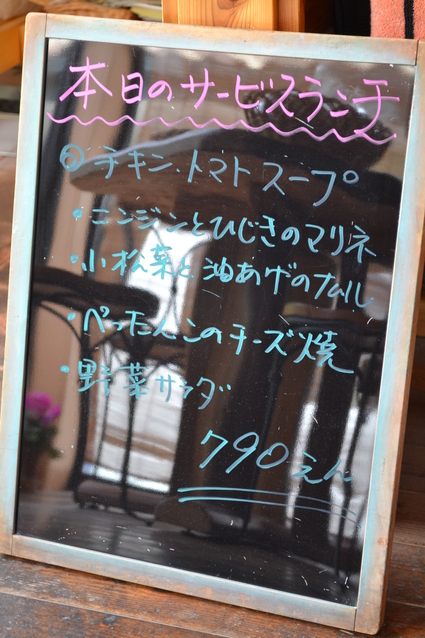 本日のサービスランチ
◎チキン・トマトスープ
・ニンジンとひじきのマリネ
・小松菜と油あげのナムル
・ぺったんこのチーズ焼
・野菜サラダ
790えん